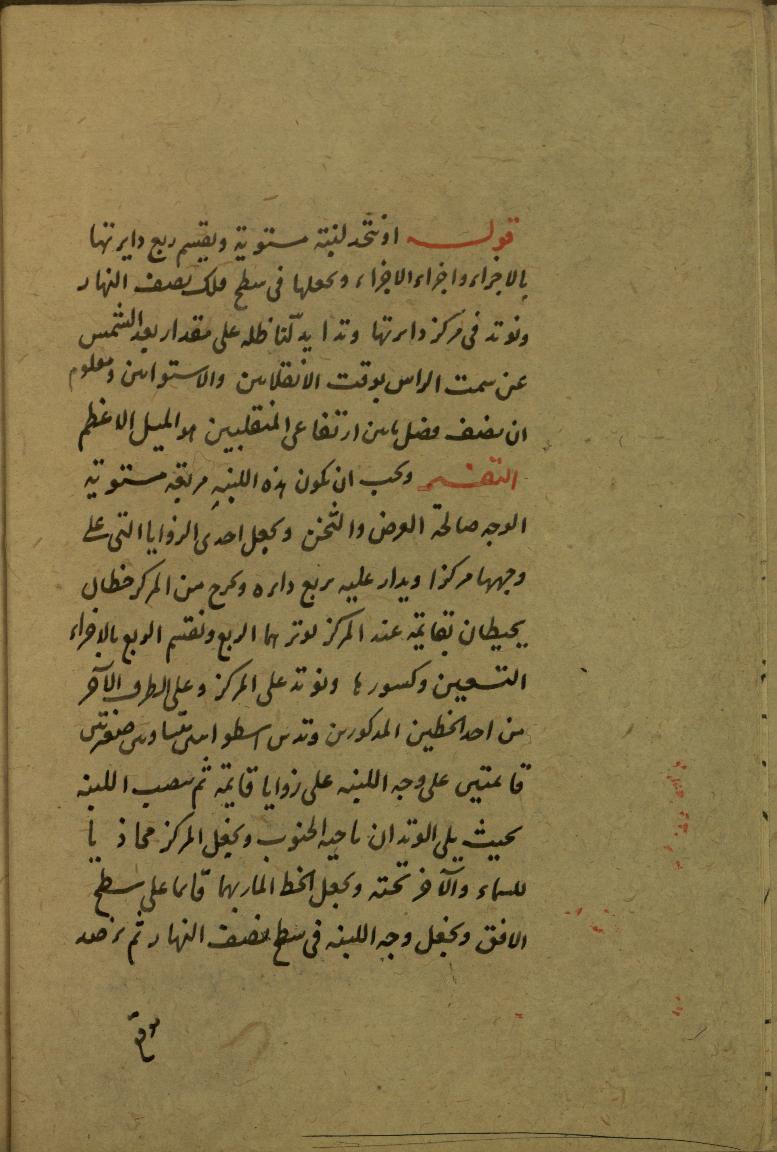 قوله او نتخذ لبنة مستوية ونقسم ربع دايرتها
بالاجزاء واجزاء الاجزاء ونجعلها فى سطح فلك نصف النهار
ونوتد فى مركز دايرتها وتدا يدلنا ظله على مقدار بعد الشمس
عن سمت الراس بوقت الانقلابين والاستوايين ومعلوم
ان نصف فضل مابين ارتفاعى المنقلبين هو الميل الاعظم
التفسير ويجب ان تكون هذه اللبنه مربعة مستوية
الوجه صالحة العرض والثخن ونجعل احدى الزوايا التى على
وجهها مركزا ويدار عليه ربع دايره ويخرج من المركز خطان
يحيطان بقايمة عند المركز يوترهما الربع ونقسم الربع بالاجزاء
التسعين وكسورها ونوتد على المركز وعلى الطرف الآخر
من احد الخطين المذكورين وتدين اسطوانيين متساويين صغيرتين
قايمتين على وجه اللبنه على زوايا قايمة ثم ننصب اللبنه
بحيث يلى الوتدان ناحية الجنوب ونجعل المركز محاذيا
للسماء والآخر تحته ونجعل الخط المار بهما قايما على سطح
الافق ونجعل وجه اللبنه فى سطح نصف النهار ثم نرصد